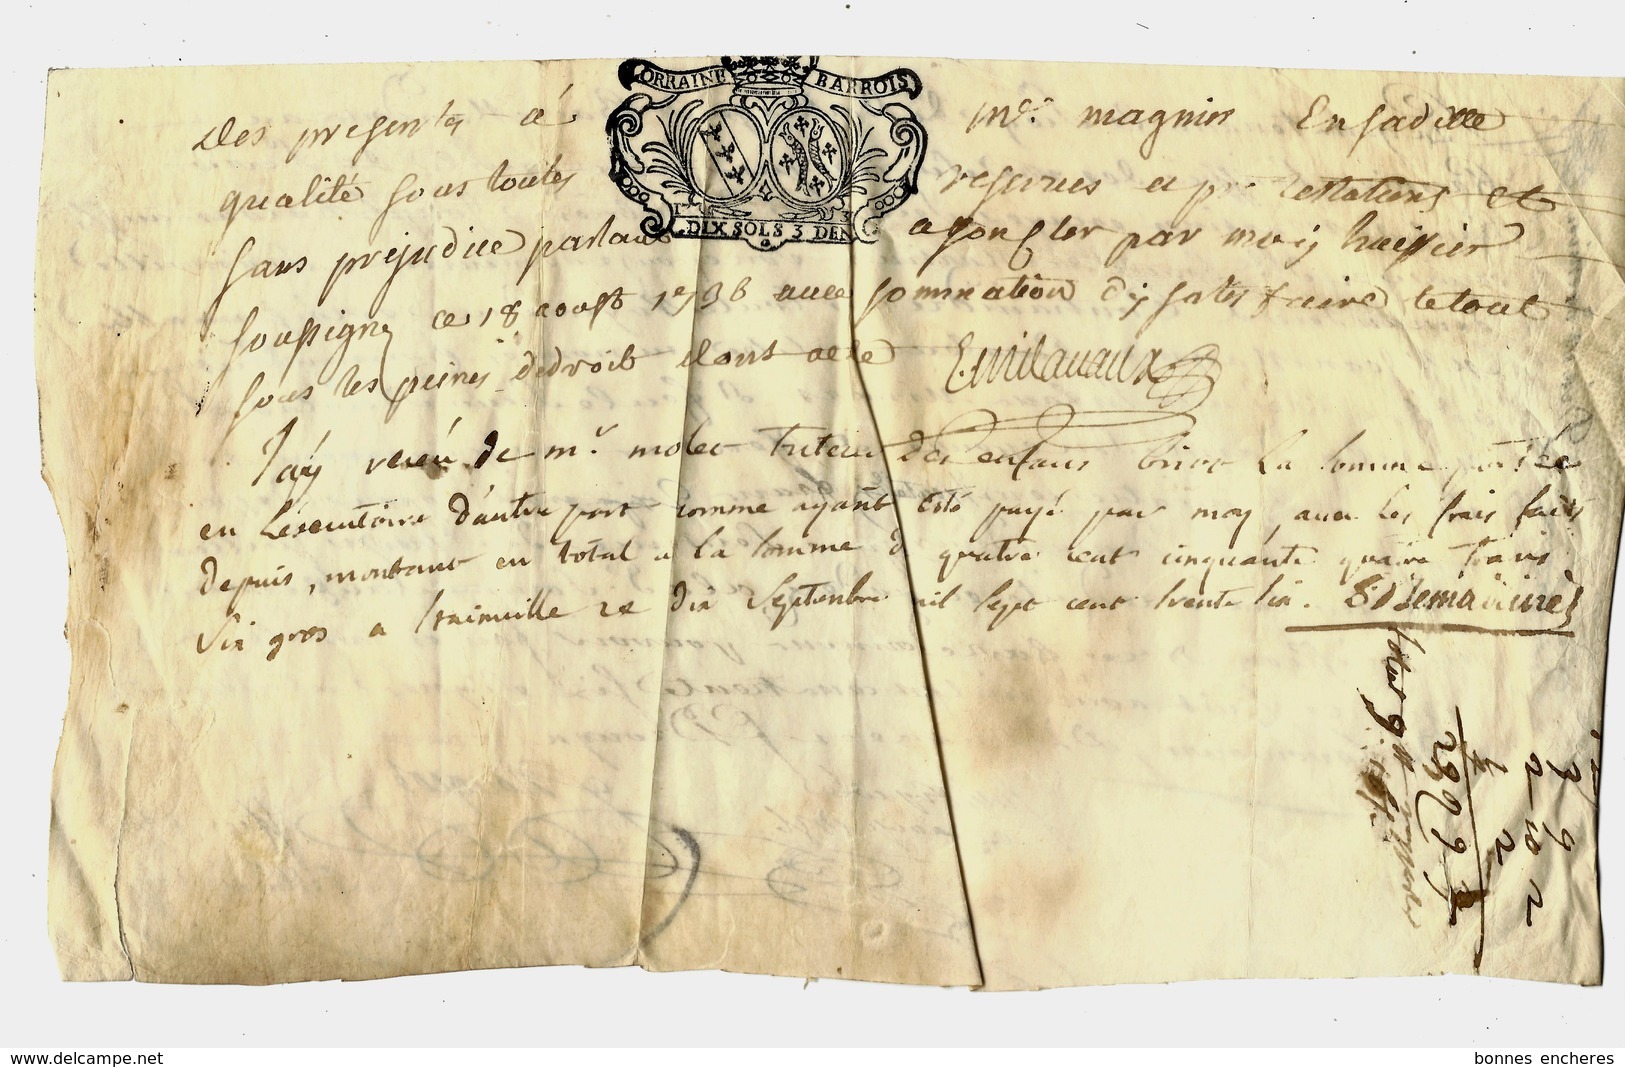 LORRAINE BARROIS
DIX SOLS 3 DEN
Des presentes à Mr. magnier En saditte
qualité sous toutes reserues et protestations et
sans prejudice parlant a son cler par moy huissier
soussigné ce 18 aoust 1736 auec sommation dy satisfaire le tout
sous les peines de droit dont acte
J'ay reçeu de mr. molet Tuteur des enfans la somme portée
en L'exsecutoire d'autre part comme ayant esté payé par moy, auec les frais faits
depuis, montant en total a la somme de quatre cent cinquante quatre frans
six gros a ce dix septembre mil sept cent trente six.
3 9
2 10 2
2
www.delcampe.net
bonnes encheres